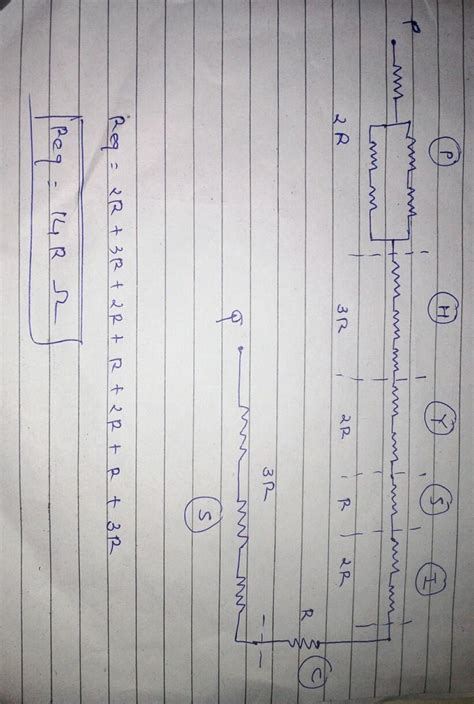 P
(P) (H) (Y) (S) (I)
2R 3R 2R R 2R
R (C)
Q 3R
(S)
Req = 2R + 3R + 2R + R + 2R + R + 3R
Req = 14R Ω